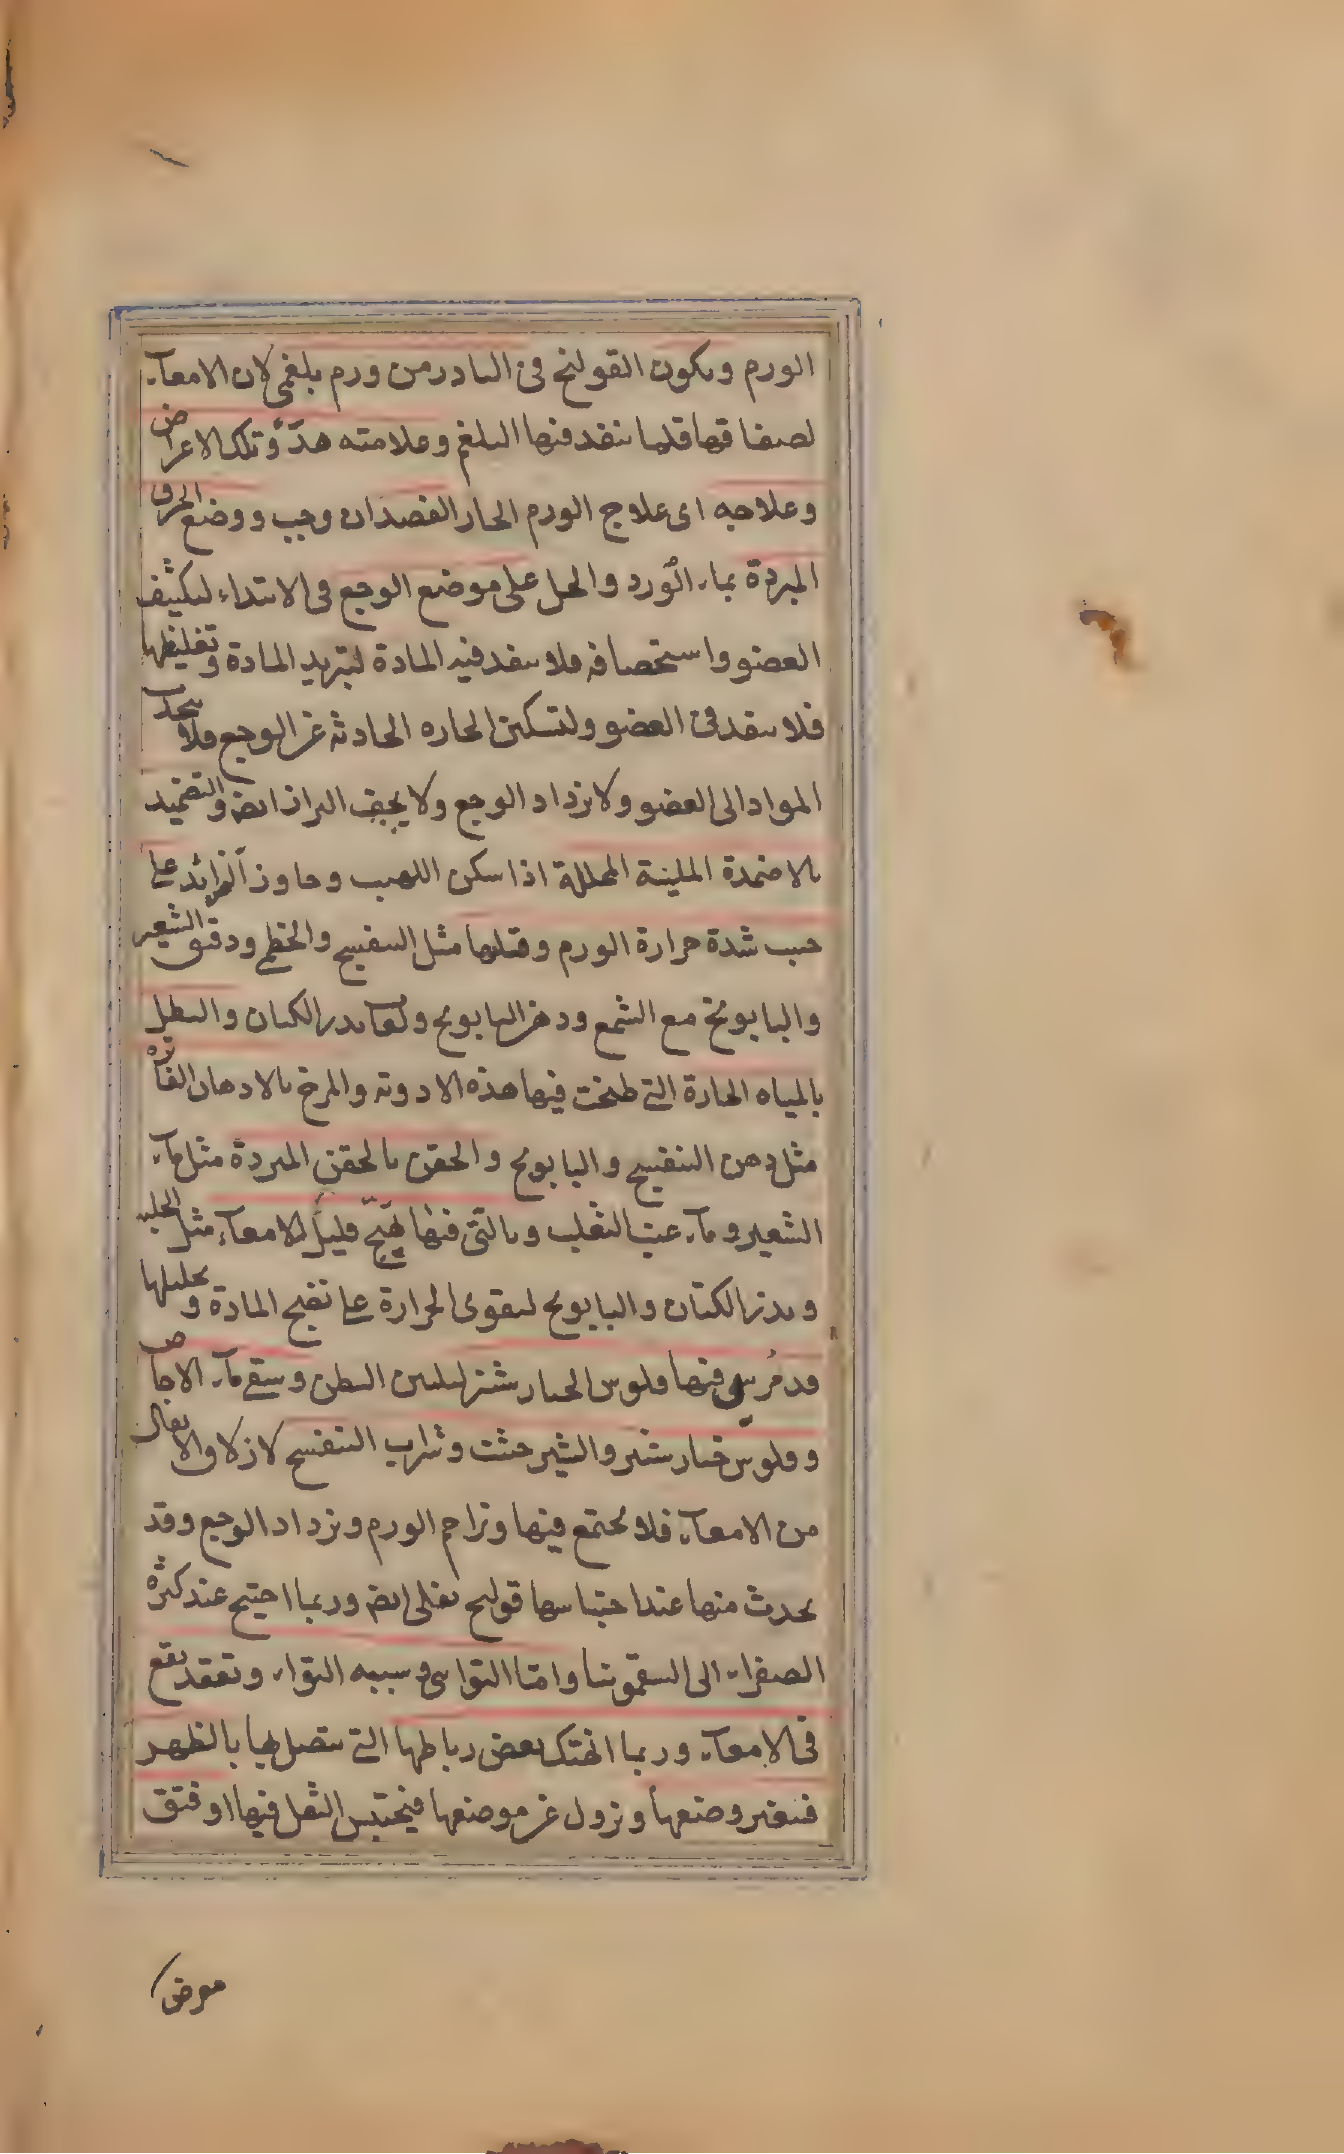 الورم ويكون القولنج فى النادر من ورم بلغمى لان الامعآء
لصفاقها قلما ينفد فيها البلغم وعلامته هذه وتلك الاعراض
وعلاجه اى علاج الورم الحار الفصد ان وجب ووضع الخرق
المبردة بماء الورد والخل على موضع الوجع فى الابتداء لتكثيف
العضو واستحصافه فلا ينفد فيه المادة لتبريد المادة وتغليظها
فلا ينفد فى العضو ولتسكين الحاره الحادثه عن الوجع فلا ينجذب
المواد الى العضو ولا يزداد الوجع ولا يجفف البراز ايض والتضميد
بالاضمدة الملينة المحللة اذا سكن اللهيب وجاوز التزائد على
حسب شدة حرارة الورم وقلتها مثل البنفسج والخطمى ودقيق الشعير
والبابونج مع الشمع ودهن البابونج ولعاب بذر الكتان والنطل
بالمياه الحارة التى طبخت فيها هذه الادوية والمرخ بالادهان الفاتره
مثل دهن البنفسج والبابونج والحقن بالحقن المبردة مثل مآء
الشعير ومآء عنب الثعلب وبالتى فيها تهيج قليل للامعآء مثل الحلبه
وبذر الكتان والبابونج ليقوى الحرارة على نضج المادة وتحليلها
قد مرس فيها فلوس الخيار شنبر لتليين البطن وسقى مآء الاجاص
وفلوس خيار شنبر والشيرخشت وشراب البنفسج لازلاق الاثفال
من الامعآء فلا يجتمع فيها وتزاحم الورم ويزداد الوجع وقد
يحدث منها عند احتباسها قولنج ثفلى ايض وربما احتيج عند كثرة
الصفراء الى السقمونيا واما التوائى وسببه التواء وتعقد يقع
فى الامعآء وربما انهتك بعض رباطها التى يتصل بها بالظهر
فتتغير وضعها وتزول عن موضعها فيحتبس الثفل فيها او فتق